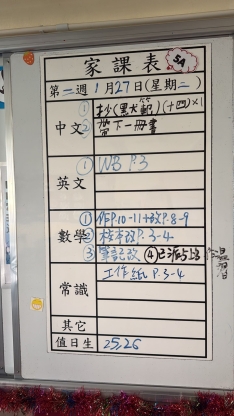 家課表
5A
第一週 1月27日(星期二)
中文
① 抄(黑犬範)(十四)×1
② 帶下一冊書
英文
① WB P.3
數學
① 作P.10-11+改P.8-9
② 校本冊P.3-4
③ 筆記改 ④已派5上8
常識
工作紙 P.3-4
其它
值日生
25,26